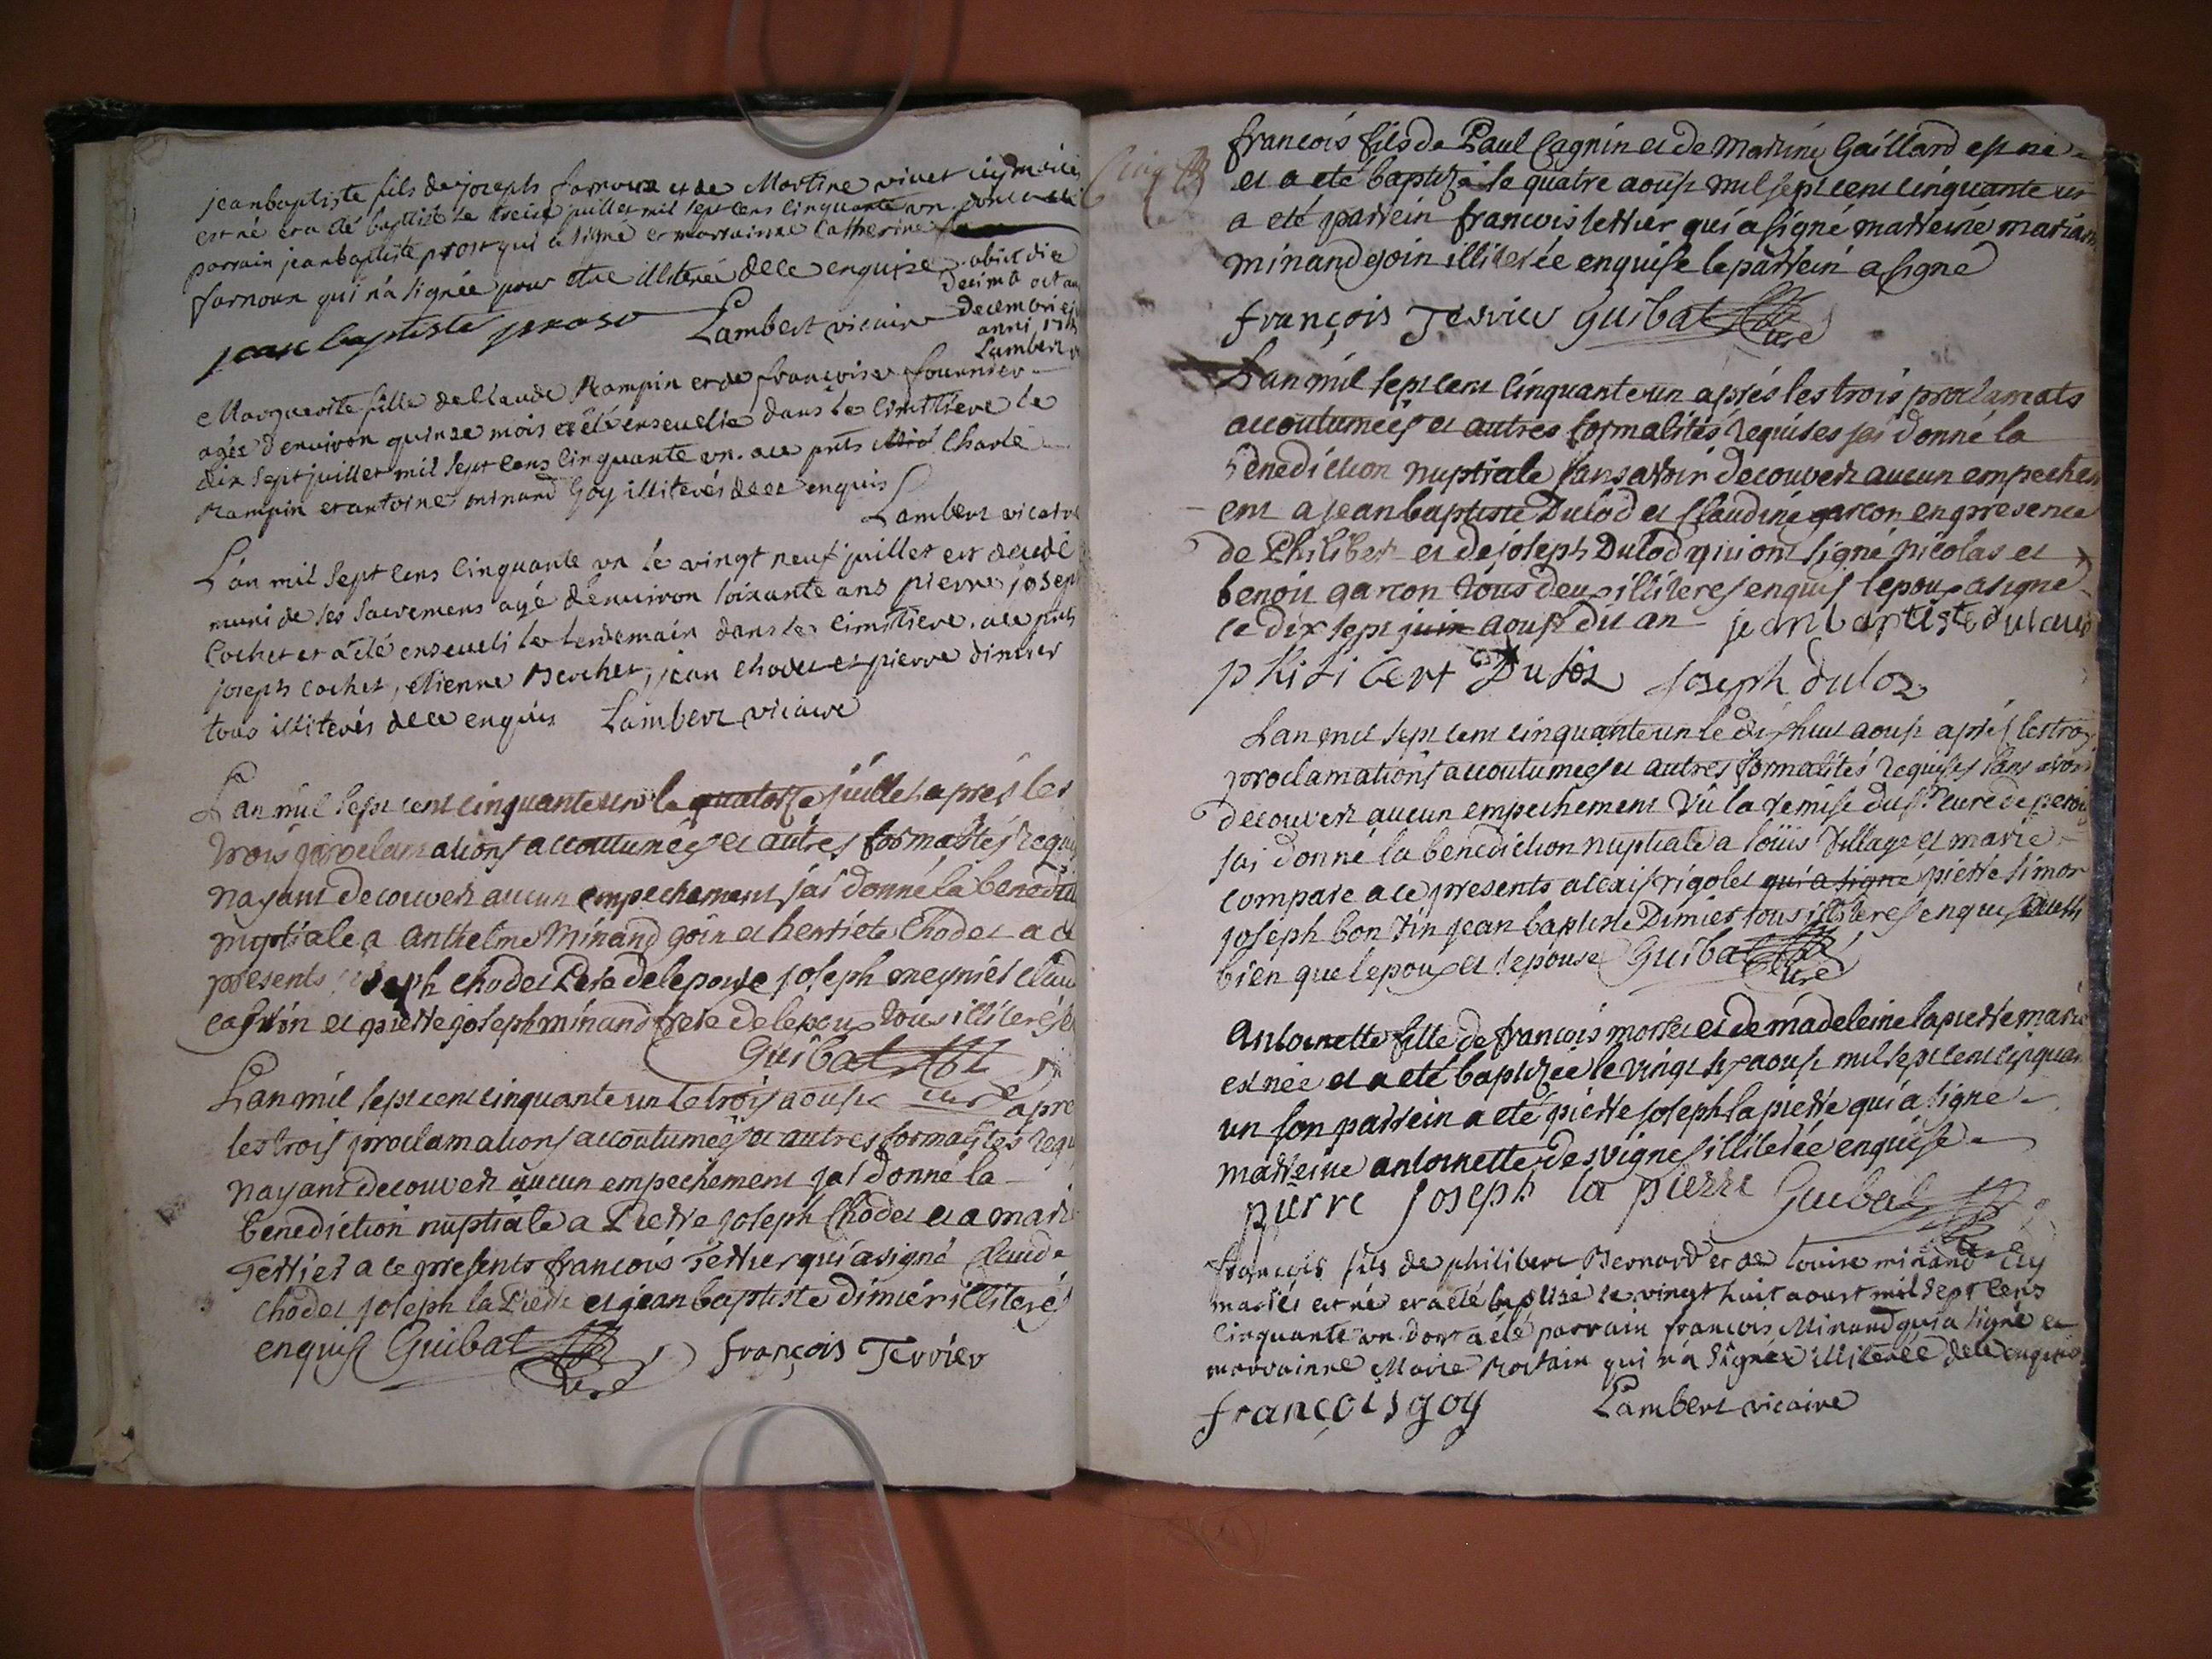 jean baptiste fils de joseph farnoux et de Martine vivet cy mariés
est né et a été baptisé le treize juillet mil sept cens cinquante un
parrain jean baptiste prost qui a signé et marrainne Catherine
farnoux qui n'a signée pour etre illiterée de ce enquise
obiit die
decima octava
decembris
anni
Lambert
jean baptiste prost Lambert vicaire
Marguerite fille de Claude Rampin et de françoise fournier
agée d'environ quinze mois a été ensevelie dans le cimitiere le
dix sept juillet mil sept cens cinquante un. a ce pnts Charle
Rampin et antoine minand Goy illiterés de ce enquis
Lambert vicaire
L'an mil sept cens cinquante un le vingt neuf juillet est decedé
muni de ses sacremens agé d'environ soixante ans pierre joseph
Cochet et a été enseveli le lendemain dans le cimitiere. a ce pnts
joseph cochet, etienne Berchet, jean chodet et pierre dimier
tous illiterés de ce enquis Lambert vicaire
L'an mil sept cent cinquante un le quatorze juillet aprés les
trois proclamations accoutumées et autres formalités requi
nayant decouvert aucun empechement jai donné la benedic
nuptiale a anthelme Minand goin et henriete Chodet a ce
presents joseph chodet Pere de lepouse joseph meynier claud
cagnin et pierre joseph minand frere de lepoux tous illiterés
Guibat
curé
L'an mil sept cent cinquante un le trois aoust apre
les trois proclamations accoutumées et autres formalités requ
nayant decouvert aucun empechement jai donné la
benediction nuptiale a Pierre joseph Chodet et a marie
Terrier a ce presents francois Terrier qui a signé claude
chodet joseph la Pierre et jean baptiste dimier illiterés
enquis Guibat curé françois Terrier
francois fils de Paul Cagnin et de Martine Gaillard est né
et a eté baptizé le quatre aoust mil sept cent cinquante un
a eté parrein francois terrier qui a signé marreine mariane
minand goin illiterée enquise le parrein a signé
françois Terrier Guibat curé
L'an mil sept cent cinquante un aprés les trois proclamats
accoutumées et autres formalités requises jai donné la
benediction nuptiale sans avoir decouvert aucun empechem
ent a jean baptiste Dulod et Claudine garcon en presence
de Philibert et de joseph Dulod qui ont signé nicolas et
benoit garcon tous deux illiteres enquis lepoux a signé
le dix sept juin aoust du an jean baptiste dulaud
philibert Duloz joseph duloz
L'an mil sept cent cinquante un le dix huit aoust aprés les trois
proclamations accoutumées et autres formalités requises sans avoir
decouvert aucun empechement vu la remise du sr curé de
jai donné la benediction nuptiale a louis Village et marie
compare a ce presents alexis rigolet qui a signé pierre simon
joseph bon vin jean baptiste Dimier tous illiteres enquis aussi
bien que lepoux et lepouse Guibat curé
Antoinette fille de francois morret et de madeleine lapierre mariés
est née et a eté baptizée le vingt six aoust mil sept cent cinquan
un son parrein a eté pierre joseph la pierre qui a signé
marreine antoinette desvignes illiterée enquise
pierre joseph la pierre Guibat curé
françois fils de philibert Bernard et de louise minand cy
mariés est né et a été baptisé le vingt huit aoust mil sept cens
cinquante un dont a été parrain françois Minand qui a signé et
marrainne Marie qui n'a signée illiterée de ce enquise
françois goy Lambert vicaire